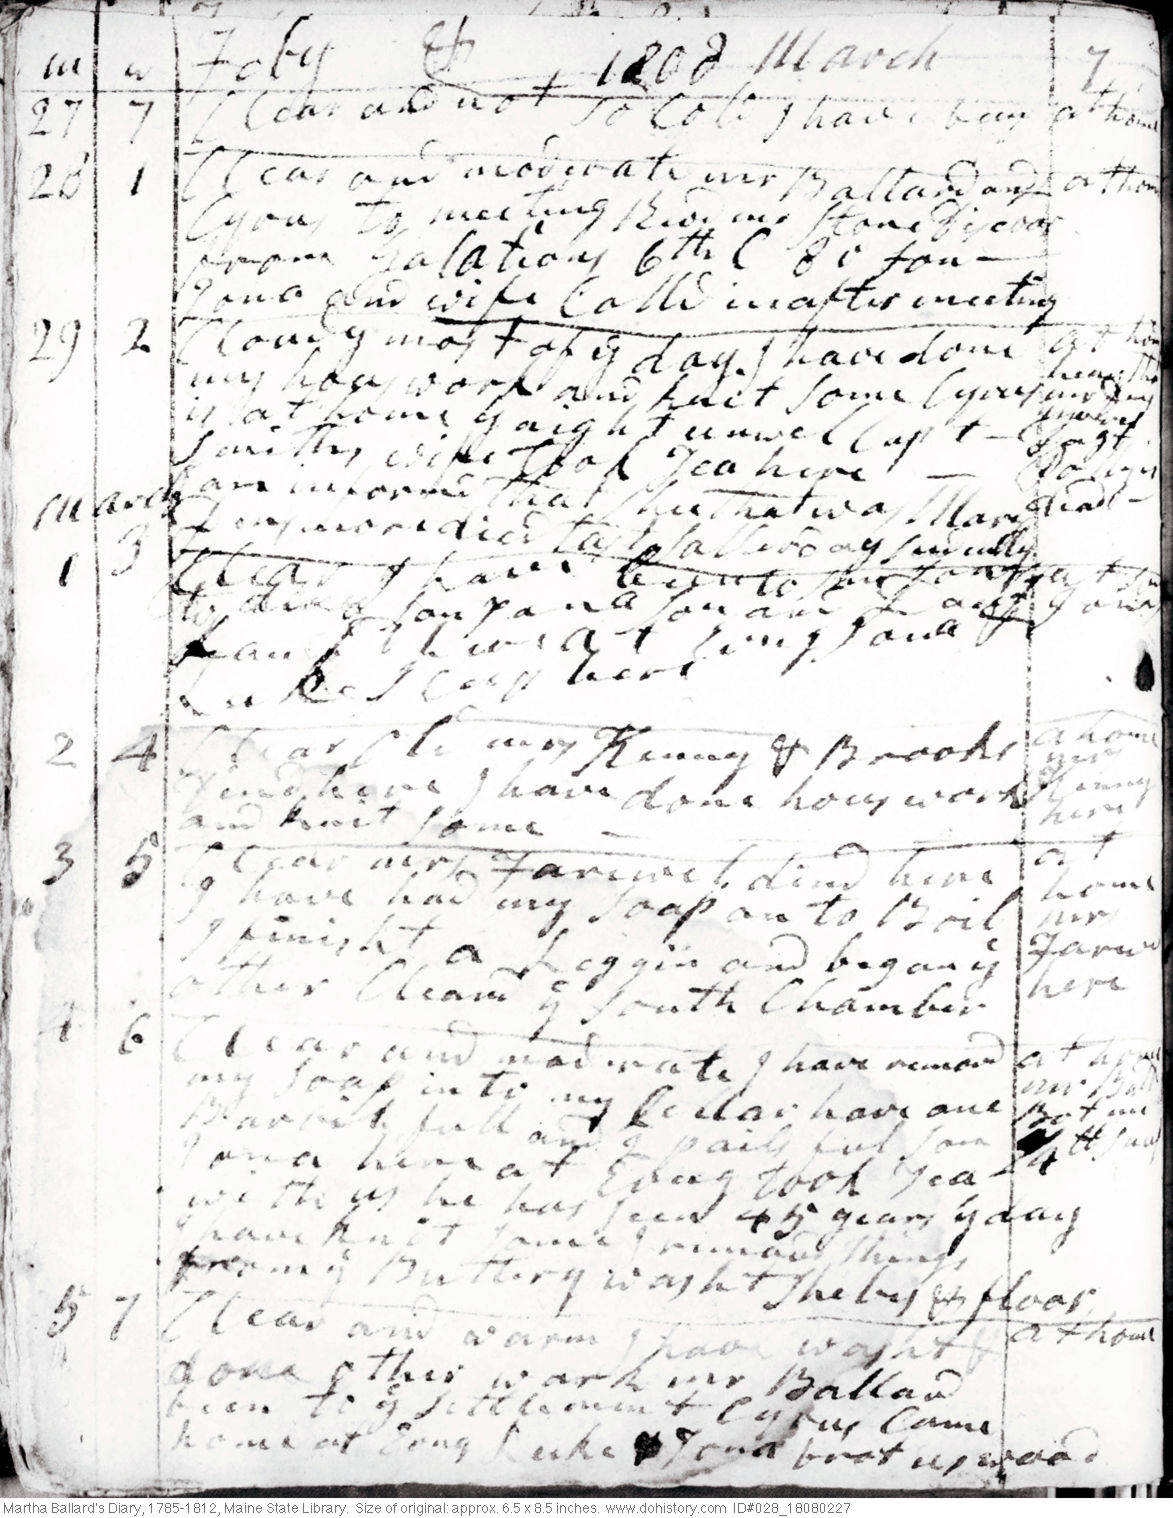 m w Feby & 1808 March 7
27 7 Clear and not So Cold I have been at home
28 1 Clear and moderate mr Ballard and at home
Cyrus to meeting Revd mr Stone Discors
from Galations 6th C 8 v fon
Jona and wife Calld in after meeting
29 2 Cloudy most of ye day. I have done at home
my hous work and knit Some Cyrus
is at home y night unwel Capt
Smiths wife Took Tea here
March am informd that Shee that was Mary died
died last Satterday sudnlly
1 3 Clear I have been to Son at Son
to Son Jonas
Evng Jona &
Luke Sleep here
2 4 Clear Cld mrs Kenny & Brooks at home
dind here I have done hous work mr Kenny
and knit some here
3 5 Clear mrs Farewel dind here at
I have had my Soap on to Boil home
I finisht a Leggin and began ye mrs Farewel
other Cleand ye South Chamber here
4 6 Clear and moderate I have removd at home
my Soap into my Cellar have one mr Ball
Barril full and 7 pails ful Son Bot me
Jona here at Evng took Tea 24 lb
with us he has Seen 45 years ys day
I have knit Some I removd things
from ye Buttery washt Shelvs & floor
5 7 Clear and warm I have washt & at home
done other work mr Ballard
been to ye Settlement Cyrus Came
home at Evng Luke & Jona brot us wood
Martha Ballard's Diary, 1785-1812, Maine State Library. Size of original: approx. 6.5 x 8.5 inches. www.dohistory.com ID#028_18080227